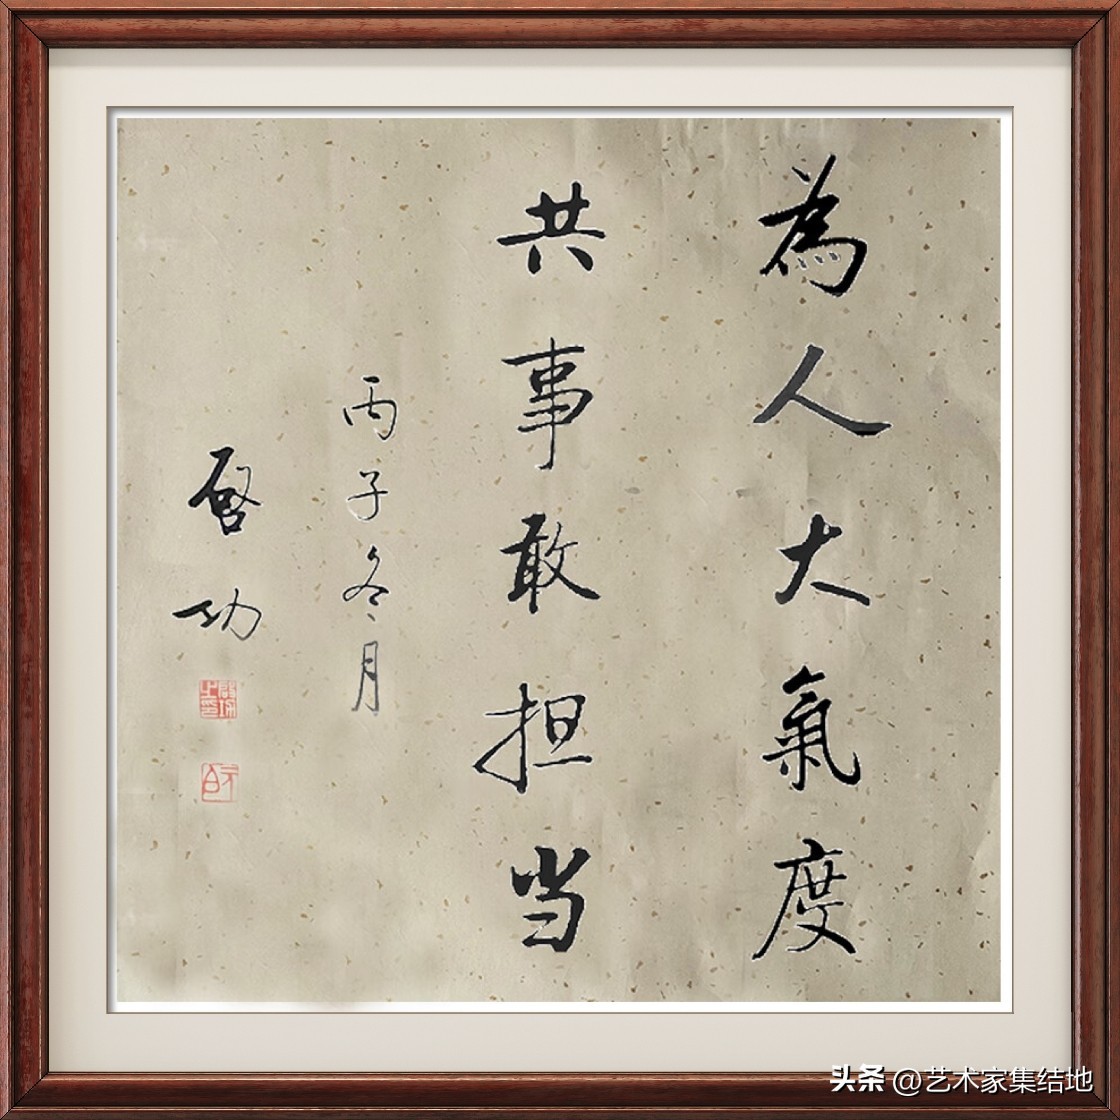 為人大氣度
共事敢担当
丙子冬月
启功
头条 @艺术家集结地